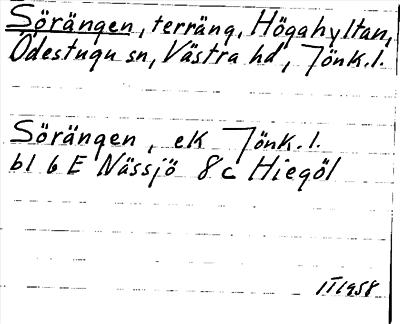 Sörängen, terräng. Högahyltan,
Ödestugu sn, Västra hd, Jönk.l.
Sörängen, ek Jönk.l.
bl 6 E Nässjö 8c Hiegöl
1958